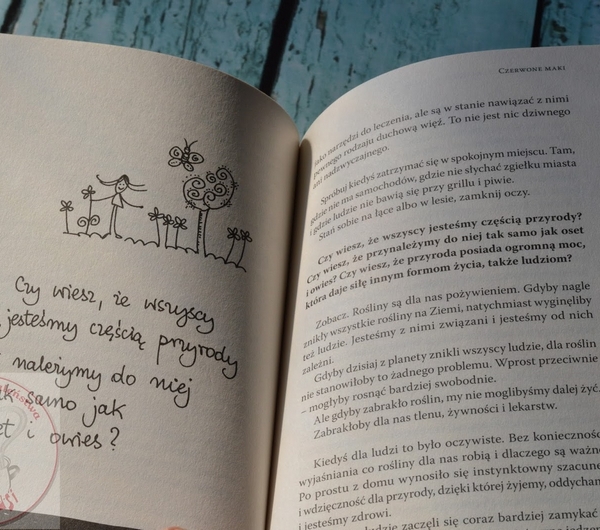 Czy wiesz, że wszyscy
jesteśmy częścią przyrody
należymy do niej
samo jak
i owies?
CZERWONE MAKI
jako narzędzi do leczenia, ale są w stanie nawiązać z nimi
pewnego rodzaju duchową więź. To nie jest nic dziwnego
ani nadzwyczajnego.
Spróbuj kiedyś zatrzymać się w spokojnym miejscu. Tam,
gdzie nie ma samochodów, gdzie nie słychać zgiełku miasta
i gdzie ludzie nie bawią się przy grillu i piwie.
Stań sobie na łące albo w lesie, zamknij oczy.
Czy wiesz, że wszyscy jesteśmy częścią przyrody?
Czy wiesz, że przynależymy do niej tak samo jak oset
i owies? Czy wiesz, że przyroda posiada ogromną moc,
która daje siłę innym formom życia, także ludziom?
Zobacz. Rośliny są dla nas pożywieniem. Gdyby nagle
znikły wszystkie rośliny na Ziemi, natychmiast wyginęliby
też ludzie. Jesteśmy z nimi związani i jesteśmy od nich
zależni.
Gdyby dzisiaj z planety znikli wszyscy ludzie, dla roślin
nie stanowiłoby to żadnego problemu. Wprost przeciwnie
– mogłyby rosnąć bardziej swobodnie.
Ale gdyby zabrakło roślin, my nie moglibyśmy dalej żyć.
Zabrakłoby dla nas tlenu, żywności i lekarstw.
Kiedyś dla ludzi to było oczywiste. Bez koniecznoś
wyjaśniania co rośliny dla nas robią i dlaczego są ważne
Po prostu z domu wynosiło się instynktowny szacune
i wdzięczność dla przyrody, dzięki której żyjemy, oddycham
i jesteśmy zdrowi.
ludzie zaczęli się coraz bardziej zamykać